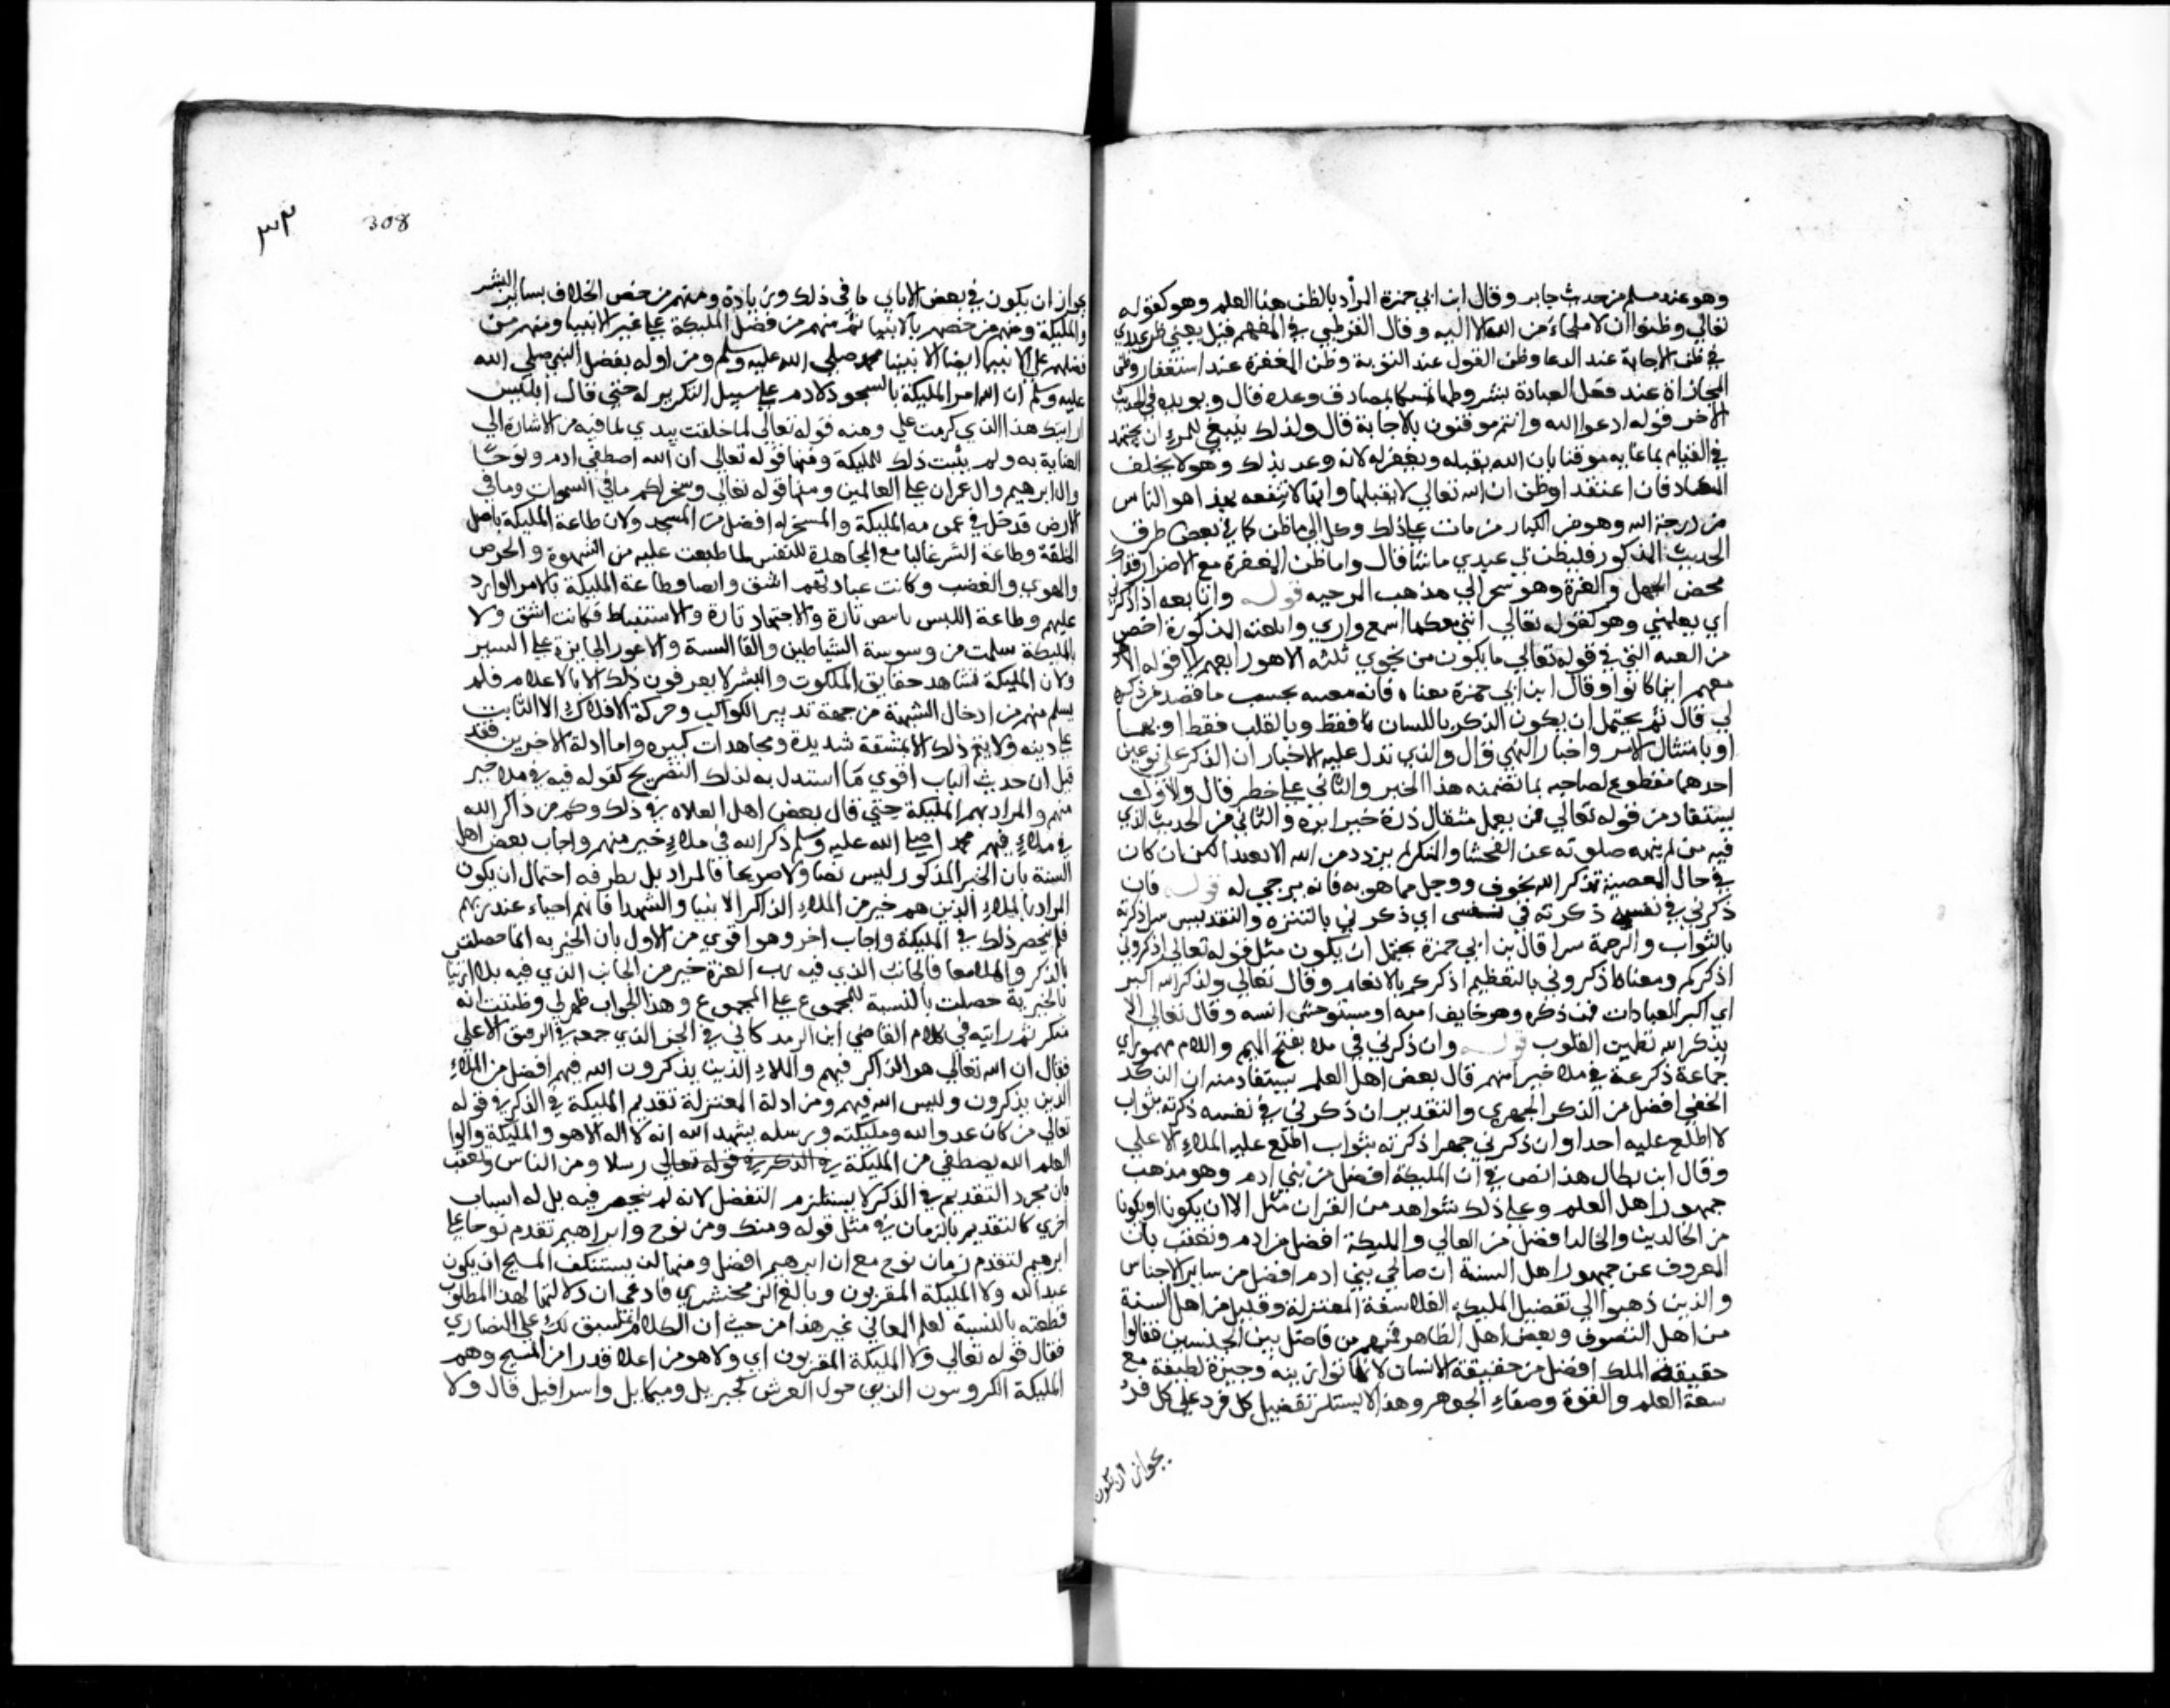 وهو عند مسلم من حديث جابر وقال ابن ابي جمرة المراد بالظن هنا العلم وهو كقوله
تعالي وظنوا ان لا ملجاء من الله الا اليه وقال القرطبي في المفهم قيل يعني ظن عبدي
في ظن الاجابة عند الدعا وظن القبول عند التوبة وظن المغفرة عند استغفار وظن
المجازاة عند فعل العبادة بشروطها تمسكا بصادق وعده قال ويويده في الحديث
الاخر قوله ادعوا الله وانتم موقنون بالاجابة قال ولذلك ينبغي للمرء ان يجتهد
في القيام بما عليه موقنا بان الله يقبله ويغفر له لانه وعد بذلك وهو لا يخلف
الميعاد فان اعتقد اوظن ان الله تعالي لا يقبلها وانها لا تنفعه فهذا هو الياس
من رحمة الله وهو من الكباير من مات علي ذلك وكل الي ما ظن كما في بعض طرق
الحديث المذكور فليظن بي عبدي ما شا قال واما ظن المغفرة مع الاصرار فذاك
محض الجهل والغرة وهو يجر الي مذهب المرجيه قوله وانا معه اذا ذكرني
اي بعلمي وهو كقوله تعالي انني معكما اسمع واري والمعية المذكورة اخص
من المعية التي في قوله تعالي ما يكون من نجوي ثلثه الا هو رابعهم الي قوله الا هو
معهم اينما كانوا وقال ابن ابي جمرة معناه فانا معه بحسب ما قصد من ذكره
لي قال ثم يحتمل ان يكون الذكر باللسان فقط وبالقلب فقط او بهما
او بامتثال الامر واجتناب النهي قال والذي تدل عليه الاخبار ان الذكر علي نوعين
احدهما مقطوع لصاحبه بما تضمنه هذا الخبر والثاني علي خطر قال والاول
يستفاد من قوله تعالي فمن يعمل مثقال ذرة خيرا يره والثاني من الحديث الذي
فيه من لم تنهه صلوته عن الفحشا والمنكر لم يزدد من الله الا بعدا لكن ان كان
في حال المعصية تذكر الله بخوف ووجل مما هو به فانه يرجي له قوله فان
ذكرني في نفسه ذكرته في نفسي اي ذكرني بالتنزه والتقديس سرا ذكرته
بالثواب والرحمة سرا قال بن ابي جمرة يحتمل ان يكون مثل قوله تعالي اذكروني
اذكركم ومعناه اذكروني بالتعظيم اذكركم بالانعام وقال تعالي ولذكر الله اكبر
اي اكبر العبادات فمن ذكره وهو خايف امنه او مستوحش انسه وقال تعالي الا
بذكر الله تطمين القلوب قوله وان ذكرني في ملا بفتح الميم واللام مهموز اي
جماعة ذكرته في ملاء خير منهم قال بعض اهل العلم يستفاد منه ان الذكر
الخفي افضل من الذكر الجهري والتقدير ان ذكرني في نفسه ذكرته بثواب
لا اطلع عليه احدا وان ذكرني جهرا ذكرته بثواب اطلع عليه الملاء الاعلي
وقال ابن بطال هذا نص في ان المليكة افضل من بني ادم وهو مذهب
جمهور اهل العلم وعلي ذلك شواهد من القران مثل الا ان يكونا او يكونا
من الخالدين والخالد افضل من الفاني والمليكة افضل من ادم وتعقب بان
المعروف عن جمهور اهل السنة ان صالحي بني ادم افضل من ساير الاجناس
والذين ذهبوا الي تفضيل المليكة الفلاسفة المعتزلة وقليل من اهل السنة
من اهل التصوف وبعض اهل الظاهر فمنهم من فاضل بين الجنسين فقالوا
حقيقة الملك افضل من حقيقة الانسان لانها نوارنيه وخيرة لطيفة مع
سعة العلم والقوة وصفاء الجوهر وهذا لا يستلزم تفضيل كل فرد علي كل فرد
بجواز ان يكون
308
بجواز ان يكون في بعض الاناسي ما في ذلك وزيادة ومنهم من خص الخلاف بساير البشر
والمليكة ومنهم من خصهم بالانبيا ثم منهم من فضل المليكة علي غير الانبيا ومنهم من
فضلهم علي الانبيا ايضا الا نبينا محمد صلي الله عليه وسلم ومن ادله تفضل النبي صلي الله
عليه وسلم ان الله امر المليكة بالسجود لادم علي سبيل التكرير له حتي قال ابليس
ارايتك هذا الذي كرمت علي ومنه قوله تعالي لما خلقت بيدي لما فيه من الاشارة الي
العناية به ولم يثبت ذلك للمليكة ومنها قوله تعالي ان الله اصطفي ادم ونوحا
وال ابرهيم وال عمران علي العالمين ومنها قوله تعالي وسخر لكم ما في السموات وما في
الارض فدخل في عمومه المليكة والمسخر له افضل من المسخر ولان طاعة المليكة باصل
الخلقة وطاعة البشر غالبا مع المجاهدة للنفس لما طبعت عليه من الشهوة والحرص
والهوي والغضب وكانت عبادتهم اشق وايضا وطاعة المليكة بالامر الوارد
عليهم وطاعة البشر بالنص تارة والاجتهاد تارة والاستنباط فكانت اشق ولا
المليكة سلمت من وسوسة الشياطين والقا السبه والاغوا الجايزة علي البشر
ولان المليكة تشاهد حقايق الملكوت والبشر لا يعرفون ذلك الا بالاعلام فلم
يسلم منهم من ادخال الشبهة من جهة تدبير الكواكب وحركة الافلاك الا الثابت
علي دينه ولا يتم ذلك الا بمشقة شديدة ومجاهدات كبيره واما ادلة الاخرين فقد
قيل ان حديث الباب اقوي ما استدل به لذلك التصريح كقوله فيه في ملاء خير
منهم والمراد بهم المليكة حتي قال بعض اهل الغلاه في ذلك وكم من ذاكر الله
في ملاء فيهم محمد صلي الله عليه وسلم ذكر الله في ملاء خير منهم واجاب بعض اهل
السنة بان الخبر المذكور ليس نصا ولا صريحا فالمراد بل يطرقه احتمال ان يكون
المراد بالملاء الذين هم خير من الملاء الذاكر الانبيا والشهدا فانهم احياء عند ربهم
فلم ينحصر ذلك في المليكة واجاب اخر وهو اقوي من الاول بان الخيريه انما حصلت
بالذكر والملا معا فالجانب الذي فيه رب العزة خير من الجانب الذي فيه بلا ارتياب
بالخيرية حصلت بالنسبة للمجموع علي المجموع وهذا الجواب ظهر لي وظننت انه
مبتكر ثم رايته في كلام القاضي ابن الزمدكاني في الجز الذي جمعه في الرفيق الاعلي
فقال ان الله تعالي هو الذاكر فيهم والملاء الذين يذكرون الله فيهم افضل من الملاء
الذين يذكرون وليس الله فيهم ومن ادلة المعتزلة تقديم المليكة في الذكر في قوله
تعالي من كان عدوا لله ومليكته ورسله يشهد الله انه لا اله الا هو والمليكة واولوا
العلم الله يصطفي من المليكة في الذكر في قوله تعالي رسلا ومن الناس وتعقب
بان مجرد التقديم في الذكر لا يستلزم التفضل لانه لم ينحصر فيه بل له اسباب
اخري كالتقديم بالزمان في مثل قوله ومنك ومن نوح وابراهيم تقدم نوحا علي
ابرهيم لتقدم زمان نوح مع ان ابرهيم افضل ومنها لن يستنكف المسيح ان يكون
عبدا لله ولا المليكة المقربون وبالغ الزمخشري فادعي ان دلالتها لهذا المطلوب
قطعته بالنسبة لعلم المعاني غير هذا من حيث ان الكلام انما سيق لك علي النصاري
فقال قوله تعالي ولا المليكة المقربون اي ولا هو من اعلا قدرا من المسيح وهم
المليكة الكروبيون الذين حول العرش كجبريل وميكايل واسرافيل قال ولا